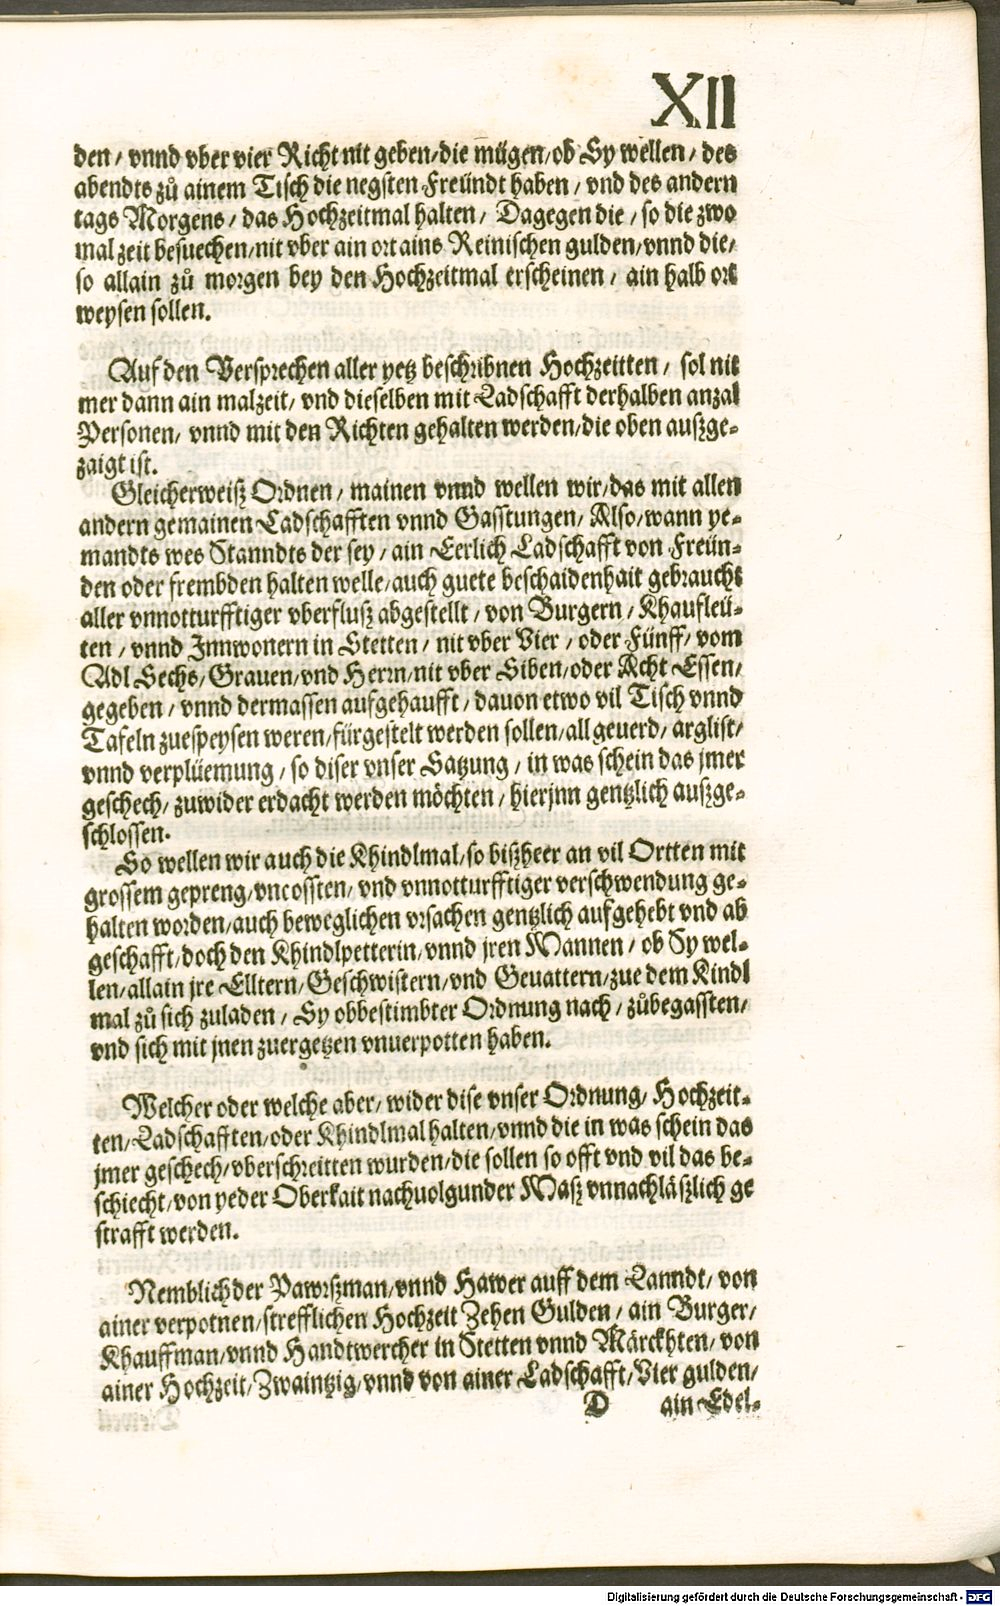 XII
den / vnnd vber vier Richt nit geben / die mügen / ob Sy wellen / des
abendts zů ainem Tisch die negsten Freündt haben / vnd des andern
tags Morgens / das Hochzeitmal halten / Dagegen die / so die zwo
mal zeit besuechen / nit vber ain ort ains Reinischen gulden / vnnd die /
so allain zů morgen bey den Hochzeitmal erscheinen / ain halb ort
weysen sollen.
Auf den Versprechen aller yetz beschribnen Hochzeitten / sol nit
mer dann ain malzeit / vnd dieselben mit Ladschafft derhalben anzal
Personen / vnnd mit den Richten gehalten werden / die oben außge-
zaigt ist.
Gleicherweiß Ordnen / mainen vnnd wellen wir / das mit allen
andern gemainen Ladschafften vnnd Gasstungen / Also / wann ye-
mandts wes Stanndts der sey / ain Eerlich Ladschafft von Freün-
den oder frembden halten welle / auch guete beschaidenhait gebraucht
aller vnnotturfftiger vberfluß abgestellt / von Burgern / Khaufleü-
ten / vnnd Innwonern in Stetten / nit vber Vier / oder Fünff / vom
Adl Sechs / Grauen / vnd Herrn / nit vber Siben / oder Acht Essen /
gegeben / vnnd dermassen aufgehaufft / dauon etwo vil Tisch vnnd
Tafeln zuespeysen weren / fürgestelt werden sollen / all geuerd / arglist /
vnnd verplüemung / so diser vnser Satzung / in was schein das jmer
geschech / zuwider erdacht werden möchten / hierjnn gentzlich außge-
schlossen.
So wellen wir auch die Khindlmal / so bißheer an vil Ortten mit
grossem gepreng / vncossten / vnd vnnotturfftiger verschwendung ge-
halten worden / auch beweglichen vrsachen gentzlich aufgehebt vnd ab
geschafft / doch den Khindlpetterin / vnnd jren Mannen / ob Sy wel-
len / allain jre Elltern / Geschwistern / vnd Geuattern / zue dem Kindl
mal zů sich zuladen / Sy obbestimbter Ordnung nach / zůbegassten /
vnd sich mit jnen zuergetzen vnuerpotten haben.
Welcher oder welche aber / wider dise vnser Ordnung / Hochzeit-
ten / Ladschafften / oder Khindlmal halten / vnnd die in was schein das
jmer geschech / vberschreitten wurden / die sollen so offt vnd vil das be-
schiecht / von yeder Oberkait nachuolgunder Maß vnnachläßlich ge
strafft werden.
Nemblich der Pawrßman / vnnd Hawer auff dem Lanndt / von
ainer verpotnen / strefflichen Hochzeit Zehen Gulden / ain Burger /
Khauffman / vnnd Handtwercher in Stetten vnnd Märckhten / von
ainer Hochzeit / Zwaintzig / vnnd von ainer Ladschafft / Vier gulden /
D ain Edel-
Digitalisierung gefördert durch die Deutsche Forschungsgemeinschaft - DFG